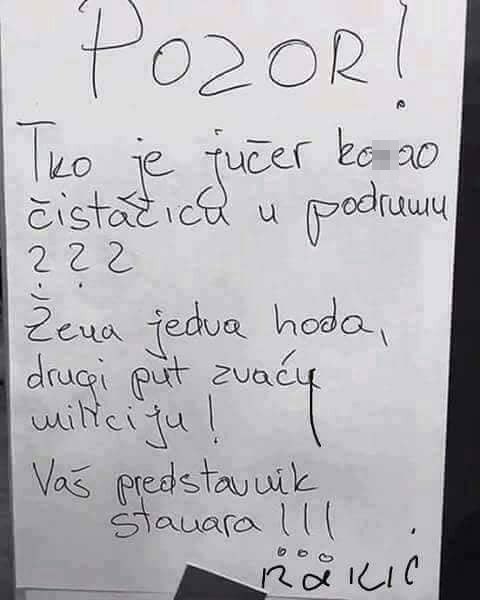 POZOR!
Tko je jučer
čistačicu u podrumu
???
Žena jedva hoda,
drugi put zvaću
miliciju!
Vaš predstavnik
stanara!!!
RAKIĆ